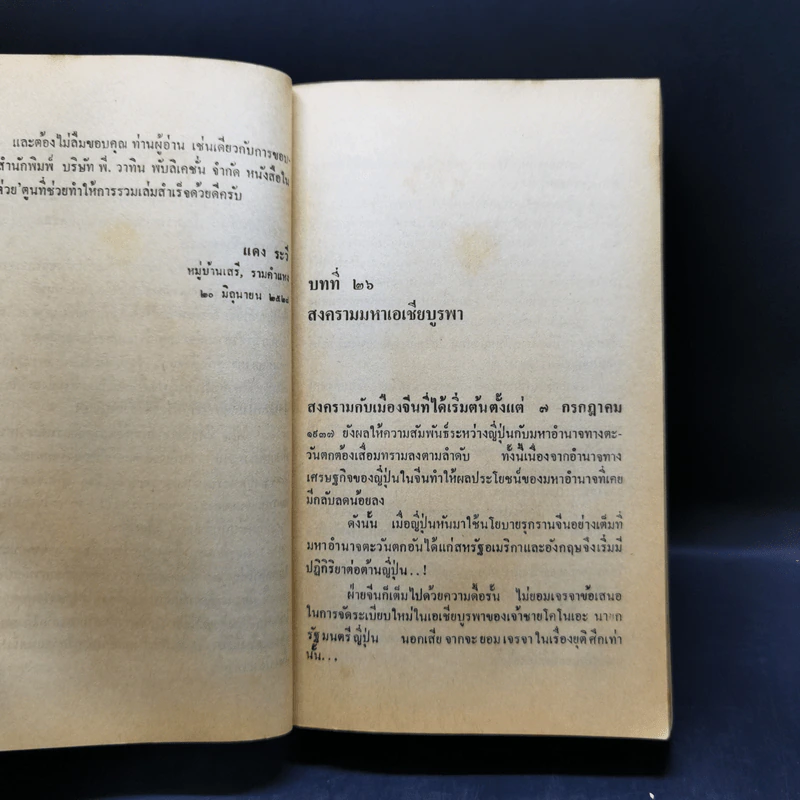 และต้องไม่ลืมขอบคุณ ท่านผู้อ่าน เช่นเดียวกับการขอบ-
สำนักพิมพ์ บริษัท พี. วาทิน พับลิเคชั่น จำกัด หนังสือใน
ตูนที่ช่วยทำให้การรวมเล่มสำเร็จด้วยดีครับ
แดง ระวี
หมู่บ้านเสรี, รามคำแหง
๒๐ มิถุนายน
บทที่ ๒๖
สงครามมหาเอเชียบูรพา
สงครามกับเมืองจีนที่ได้เริ่มต้นตั้งแต่ ๗ กรกฎาคม
๑๙๓๗ ยังผลให้ความสัมพันธ์ระหว่างญี่ปุ่นกับมหาอำนาจทางตะ-
วันตกต้องเสื่อมทรามลงตามลำดับ ทั้งนี้เนื่องจากอำนาจทาง
เศรษฐกิจของญี่ปุ่นในจีนทำให้ผลประโยชน์ของมหาอำนาจที่เคย
มีกลับลดน้อยลง
ดังนั้น เมื่อญี่ปุ่นหันมาใช้นโยบายรุกรานจีนอย่างเต็มที่
มหาอำนาจตะวันตกอันได้แก่สหรัฐอเมริกาและอังกฤษจึงเริ่มมี
ปฏิกิริยาต่อต้านญี่ปุ่น..!
ฝ่ายจีนก็เต็มไปด้วยความดื้อรั้น ไม่ยอมเจรจาข้อเสนอ
ในการจัดระเบียบใหม่ในเอเชียบูรพาของเจ้าชายโคโนเอะ นายก
รัฐมนตรีญี่ปุ่น นอกเสียจากจะยอมเจรจาในเรื่องยุติศึกเท่า
นั้น...